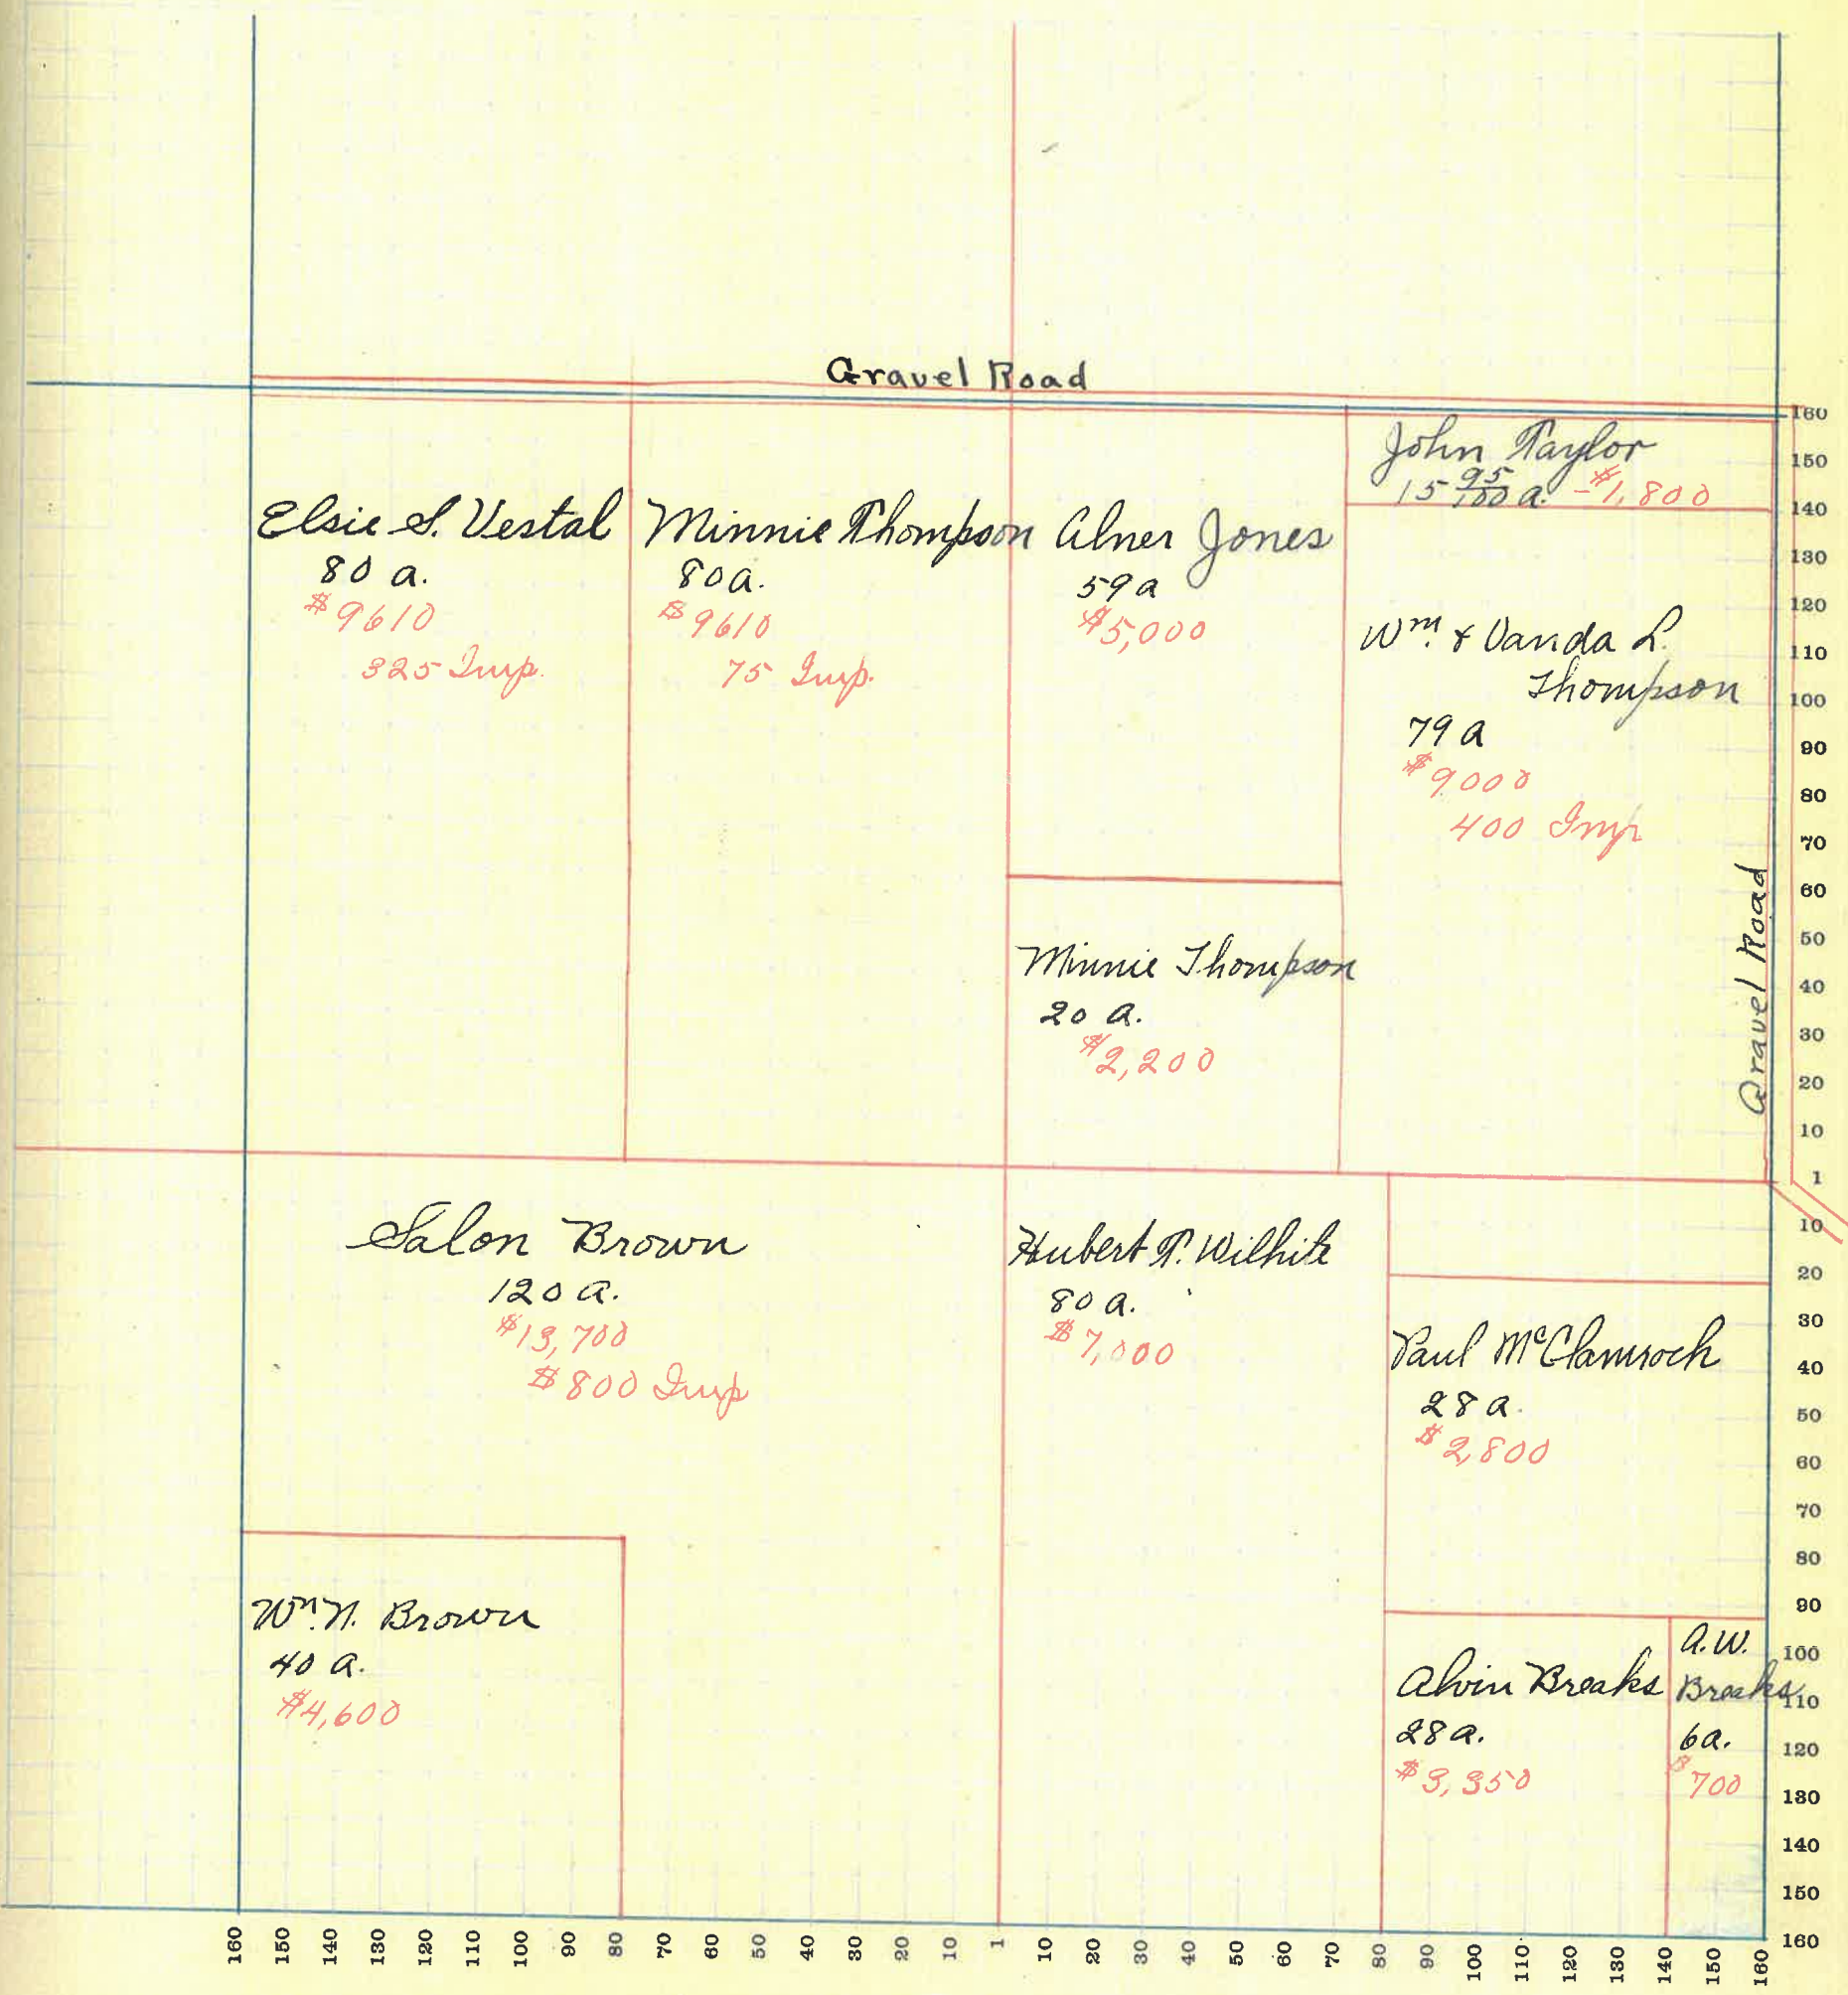 Gravel Road
Elsie S. Vestal
80 a.
$9610
325 Imp.
Minnie Thompson
80 a.
$9610
75 Imp.
Abner Jones
59 a
$5,000
John Taylor
15 95/100 a. - $1,800
Wm. & Vanda L.
Thompson
79 a
$9000
400 Imp
Minnie Thompson
20 a.
$2,200
Gravel Road
Salon Brown
120 a.
$13,700
$800 Imp
Hubert T. Wilhite
80 a.
$7,000
Paul McClamroch
28 a.
$2,800
Wm. N. Brown
40 a.
$4,600
Alvin Breaks
28 a.
$3,350
A.W.
Breaks
6 a.
$700
160
150
140
130
120
110
100
90
80
70
60
50
40
30
20
10
1
10
20
30
40
50
60
70
80
90
100
110
120
130
140
150
160
160 150 140 130 120 110 100 90 80 70 60 50 40 30 20 10 1 10 20 30 40 50 60 70 80 90 100 110 120 130 140 150 160